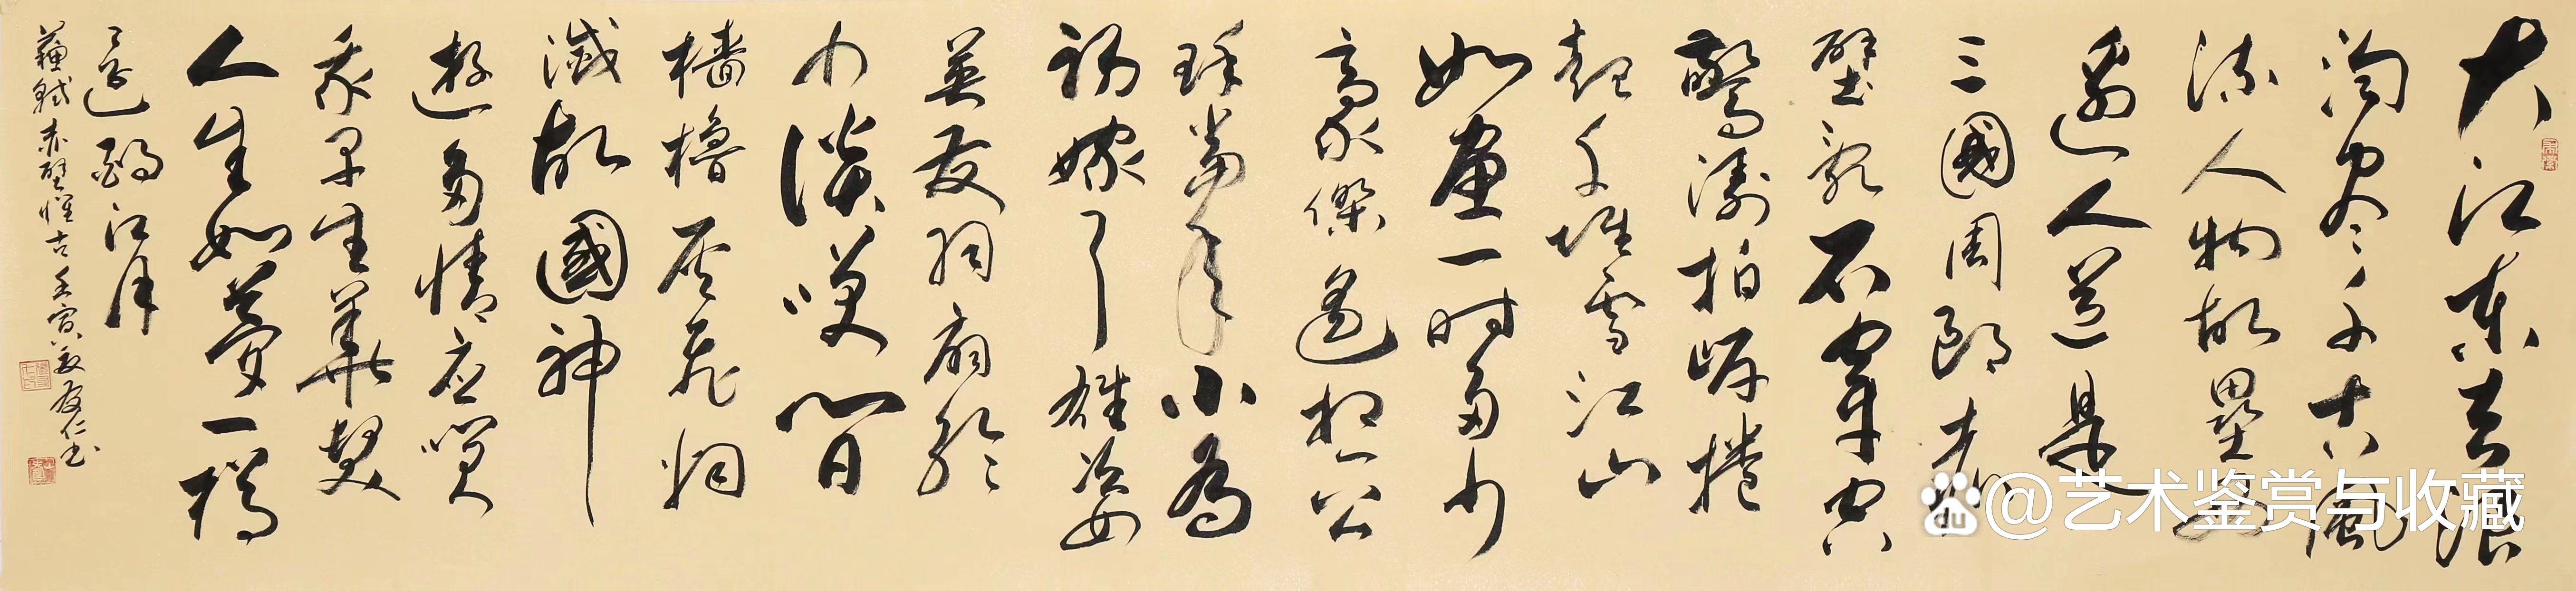 大江東去浪
淘尽千古風
流人物故壘西
邊人道是
三國周郎赤
壁亂石穿空
驚濤拍岸捲
起千堆雪江山
如畫一時多少
豪傑遙想公
瑾當年小喬
初嫁了雄姿
英發羽扇綸
巾談笑間
檣櫓灰飛烟
滅故國神
遊多情應笑
我早生華髮
人生如夢一樽
還酹江月
蘇軾赤壁懷古壬寅夏友仁书
@艺术鉴赏与收藏
du